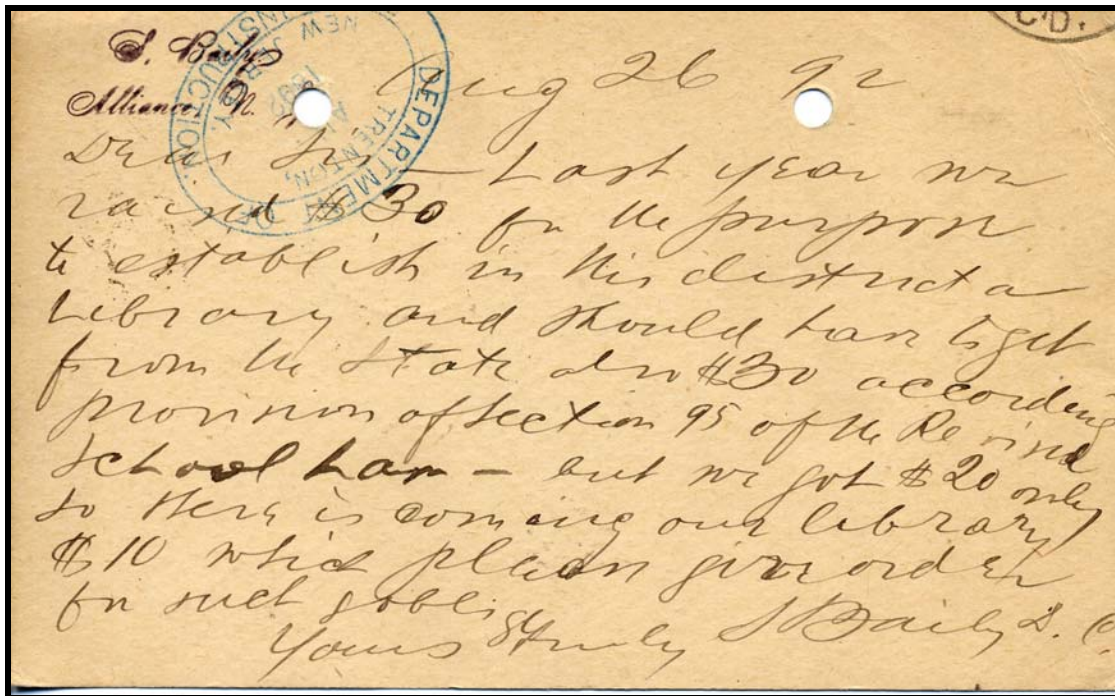 S. Baily
Alliance, N.
DEPARTMENT
INSTRUCTION.
TRENTON,
NEW JERSEY.
1892
C.D.
Aug 26 92
Dear Sir Last year we
raised $30 for the purpose
to establish in this district a
Library and should have to get
from the State also $30 according
provision of Section 95 of the Revised
School Law – but we got $20 only
so there is coming our library
$10 which please give order
for such &
Yours Truly S Baily D. C.